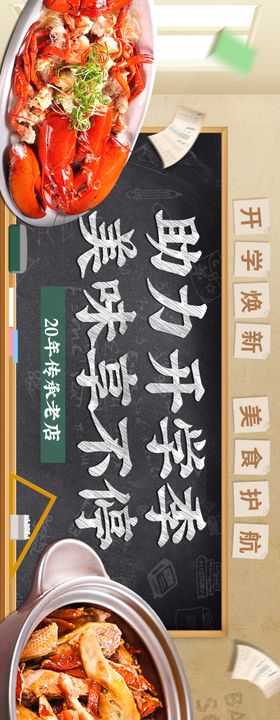 开学焕新 美食护航
助力开学季
美味享不停
20年传承老店